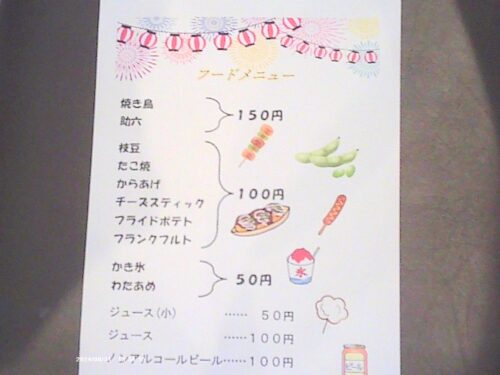 フードメニュー
焼き鳥
助六
150円
枝豆
たこ焼
からあげ
チーズスティック
フライドポテト
フランクフルト
100円
かき氷
わたあめ
50円
氷
ジュース(小) …… 50円
ジュース …… 100円
ノンアルコールビール……100円
ビール